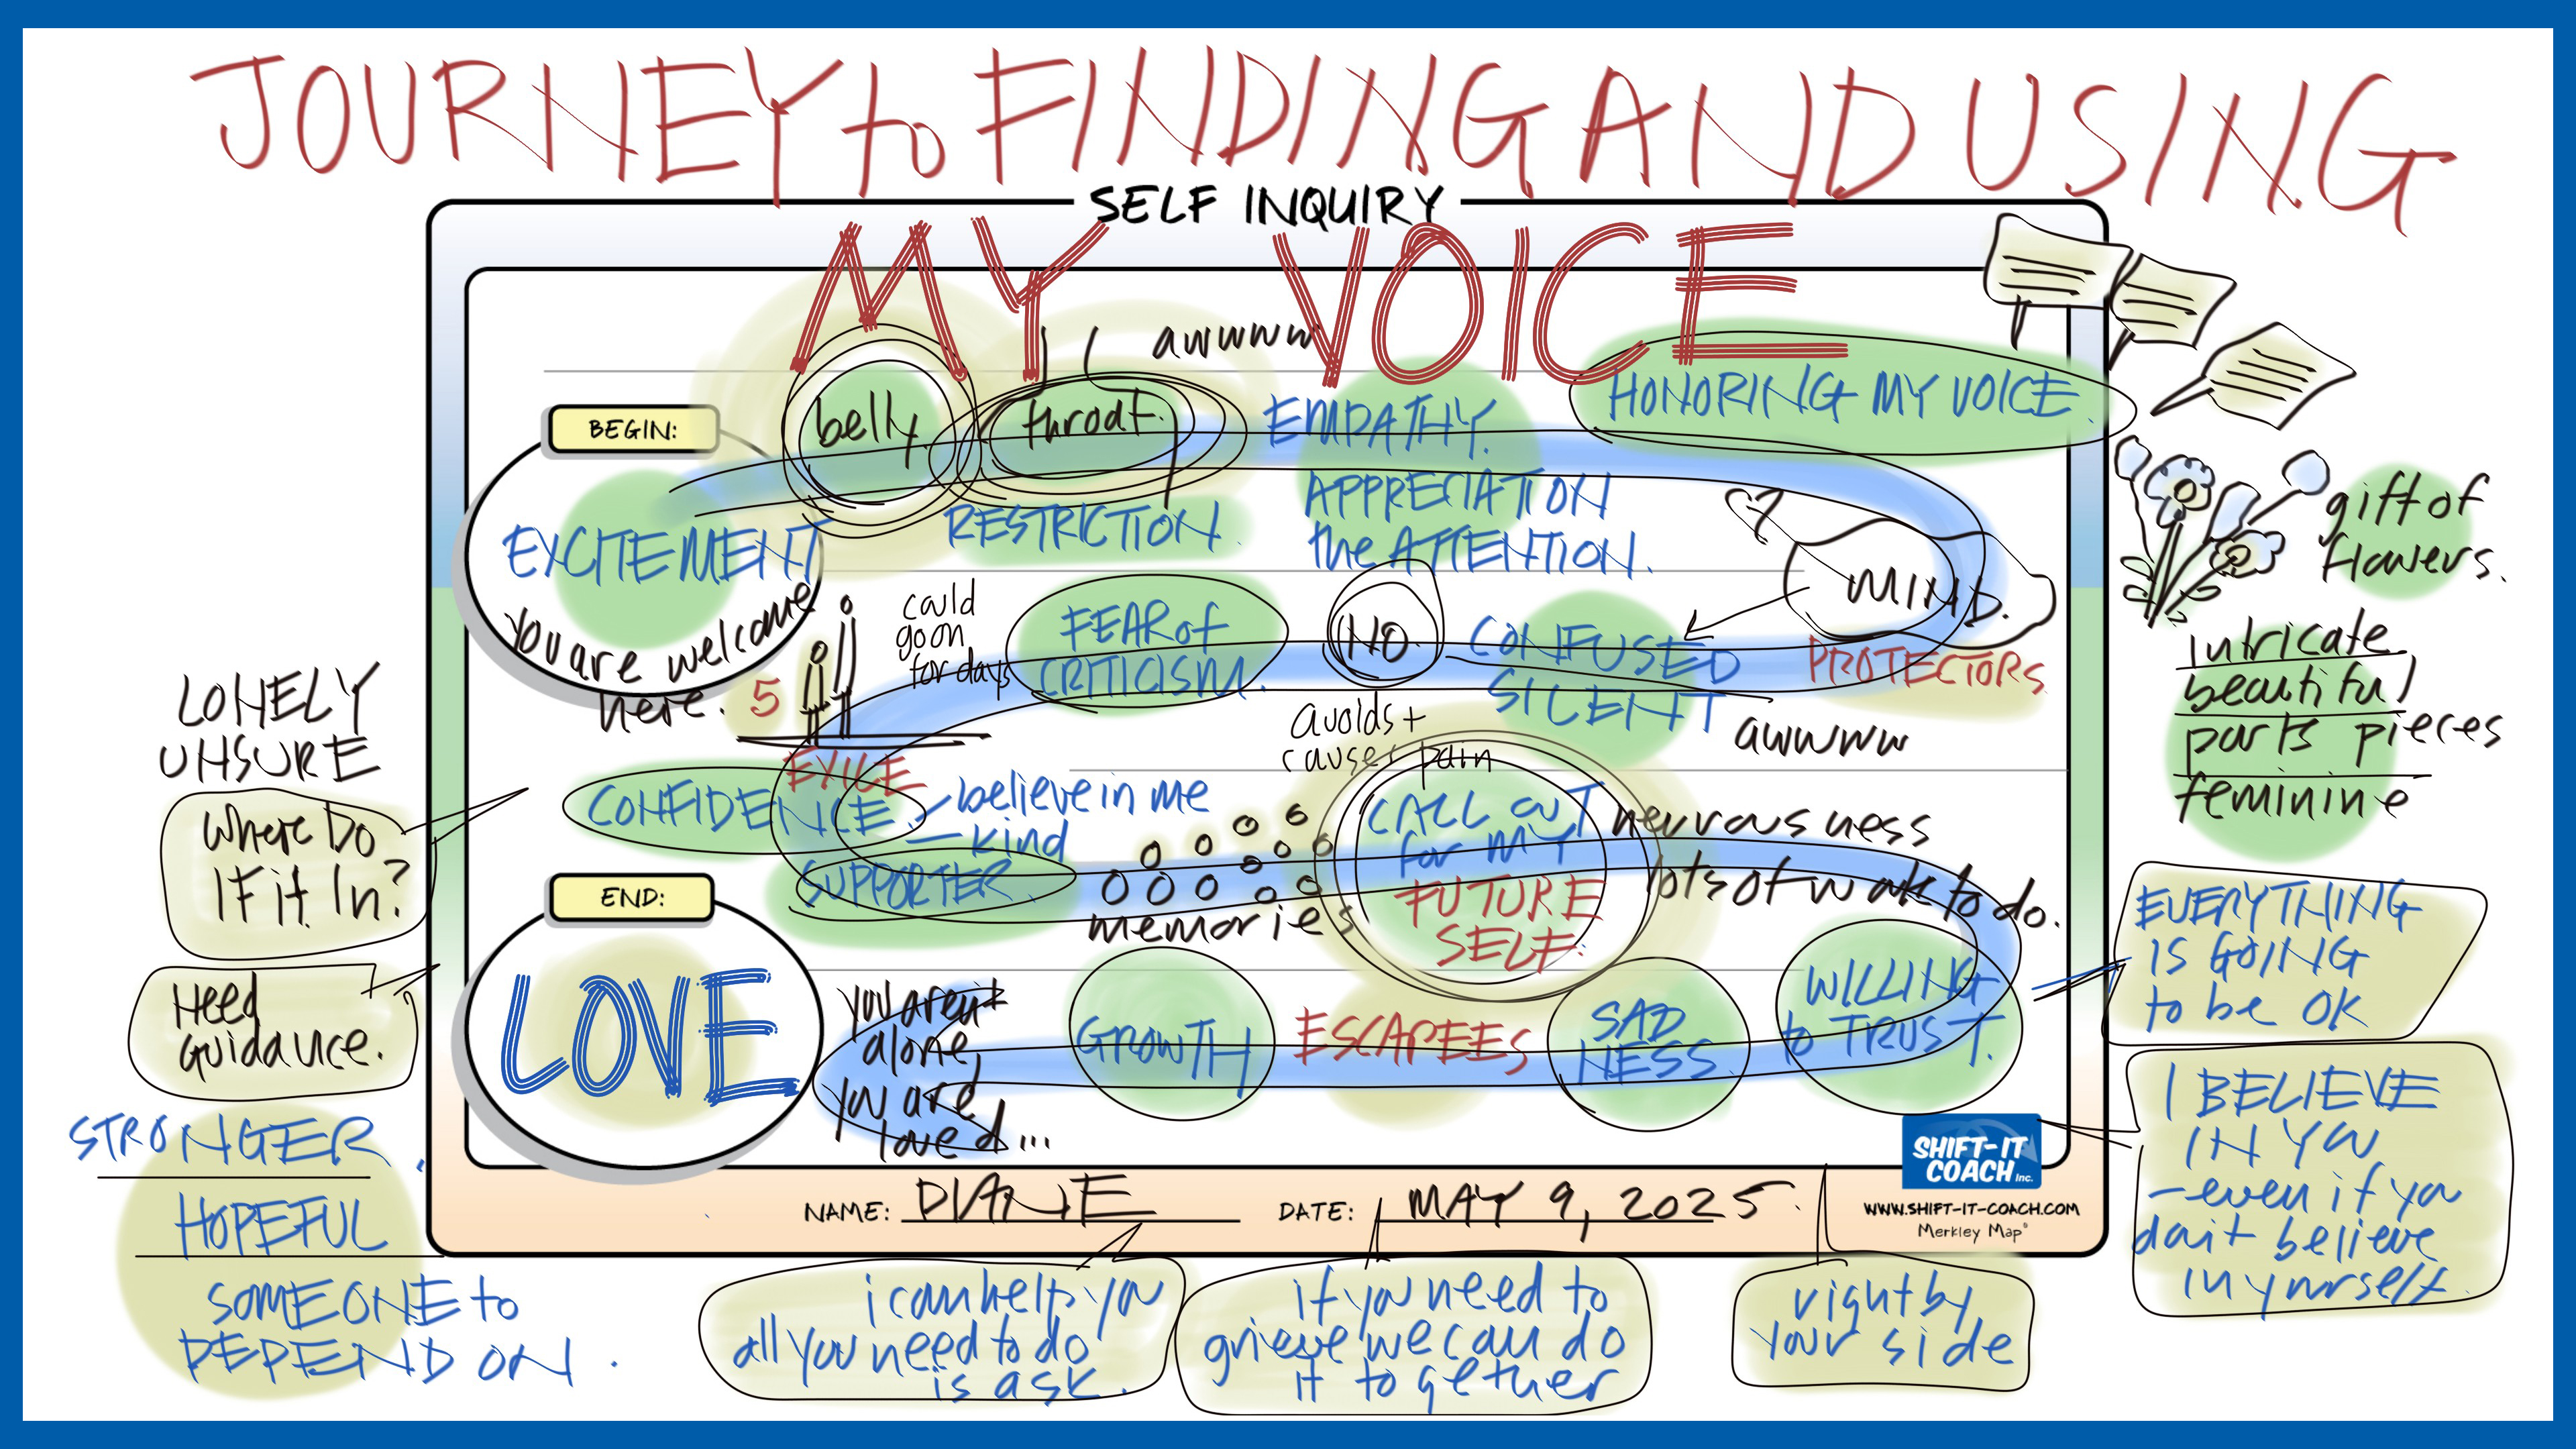 JOURNEY to FINDING AND USING
SELF INQUIRY
MY VOICE
awwww
HONORING MY VOICE.
BEGIN:
belly.
throat.
EMPATHY.
EXCITEMENT
RESTRICTION.
APPRECIATION
the ATTENTION.
?
MIND.
gift of
flowers.
You are welcome
here.
5
could
go on
for days
FEAR of
CRITICISM.
NO
CONFUSED
SILENT
PROTECTORS
awwww
avoids +
causes pain
intricate
beautiful
parts pieces
feminine
LONELY
UNSURE
Where Do
I Fit In?
Need
Guidance.
EXILE
CONFIDENCE.
- believe in me
- kind
SUPPORTER
memories
CALL OUT
for MY
FUTURE
SELF.
nervousness
lots of work to do.
END:
LOVE
You aren't
alone,
You are
loved...
GROWTH
ESCAPEES
SAD
NESS
WILLING
to TRUST.
EVERYTHING
IS GOING
to be OK
I BELIEVE
IN YOU
- even if you
don't believe
in yourself.
STRONGER.
HOPEFUL
SOMEONE to
DEPEND ON.
SHIFT-IT
COACH Inc.
WWW.SHIFT-IT-COACH.COM
Merkley Map
NAME: DIANE
DATE: MAY 9, 2025.
i can help you
all you need to do
is ask.
if you need to
grieve we can do
it together
right by
your side